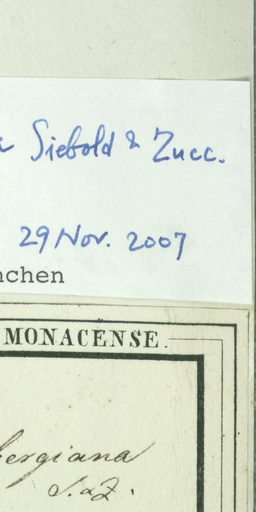 Siebold & Zucc.
29 Nov. 2007
nchen
MONACENSE.
bergiana
S. & Z.